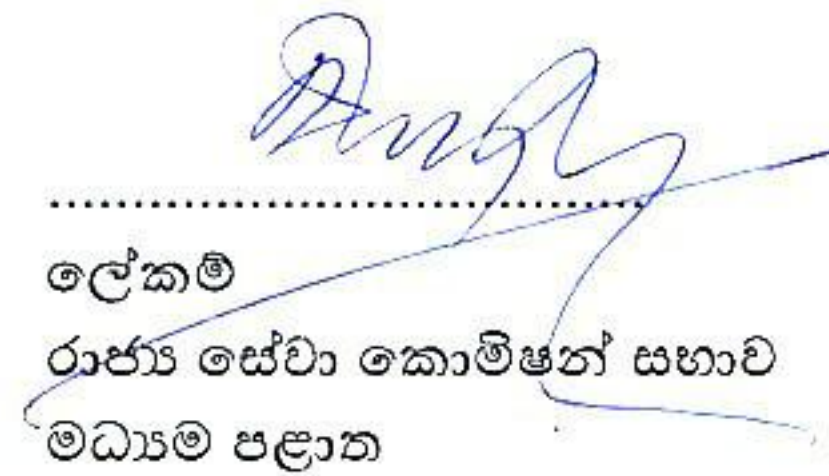 .................................................
ලේකම්
රාජ්‍ය සේවා කොමිෂන් සභාව
මධ්‍යම පළාත